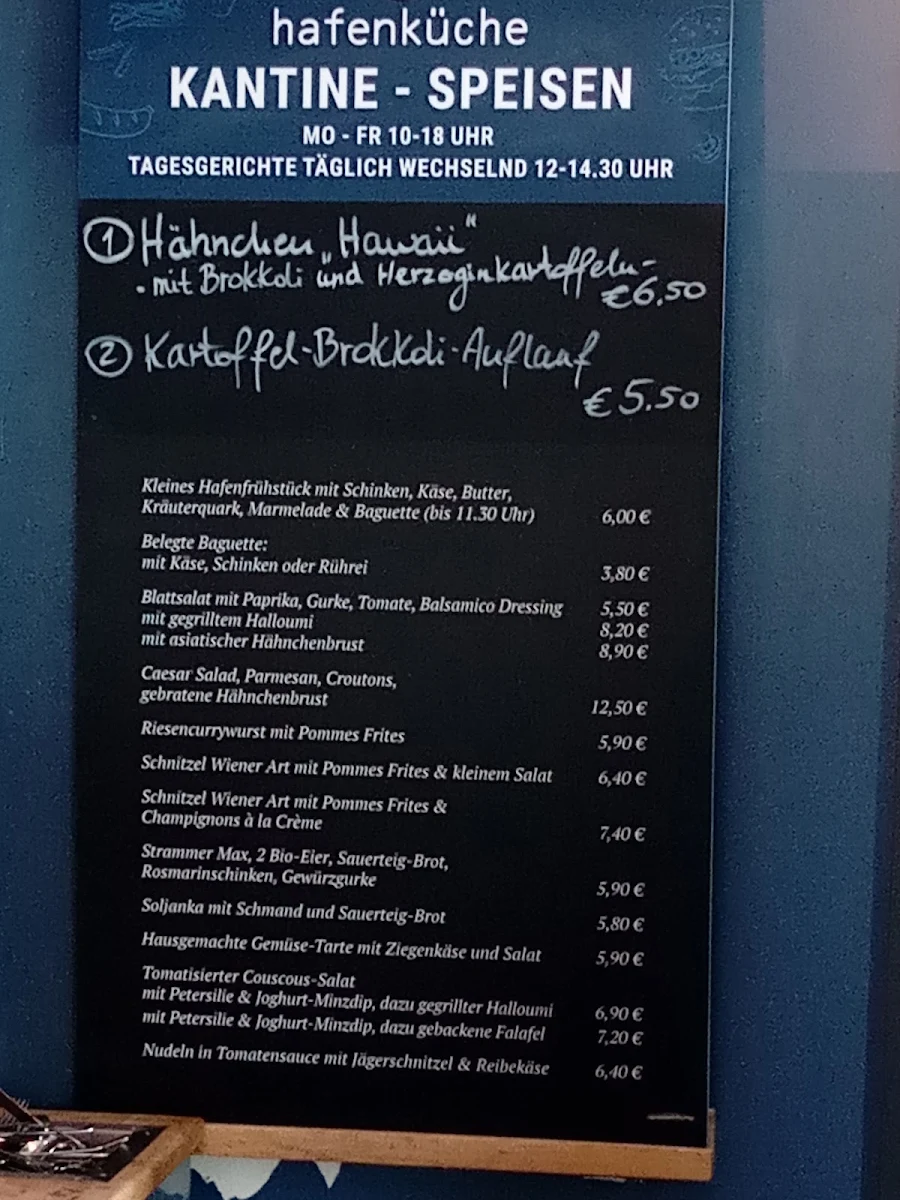 hafenküche
KANTINE - SPEISEN
MO - FR 10-18 UHR
TAGESGERICHTE TÄGLICH WECHSELND 12-14.30 UHR
① Hähnchen „Hawaii"
- mit Brokkoli und Herzoginkartoffeln -
€6.50
② Kartoffel-Brokkoli-Auflauf
€5.50
Kleines Hafenfrühstück mit Schinken, Käse, Butter,
Kräuterquark, Marmelade & Baguette (bis 11.30 Uhr) 6,00 €
Belegte Baguette:
mit Käse, Schinken oder Rührei 3,80 €
Blattsalat mit Paprika, Gurke, Tomate, Balsamico Dressing 5,50 €
mit gegrilltem Halloumi 8,20 €
mit asiatischer Hähnchenbrust 8,90 €
Caesar Salad, Parmesan, Croutons,
gebratene Hähnchenbrust 12,50 €
Riesencurrywurst mit Pommes Frites 5,90 €
Schnitzel Wiener Art mit Pommes Frites & kleinem Salat 6,40 €
Schnitzel Wiener Art mit Pommes Frites &
Champignons à la Crème 7,40 €
Strammer Max, 2 Bio-Eier, Sauerteig-Brot,
Rosmarinschinken, Gewürzgurke 5,90 €
Soljanka mit Schmand und Sauerteig-Brot 5,80 €
Hausgemachte Gemüse-Tarte mit Ziegenkäse und Salat 5,90 €
Tomatisierter Couscous-Salat
mit Petersilie & Joghurt-Minzdip, dazu gegrillter Halloumi 6,90 €
mit Petersilie & Joghurt-Minzdip, dazu gebackene Falafel 7,20 €
Nudeln in Tomatensauce mit Jägerschnitzel & Reibekäse 6,40 €